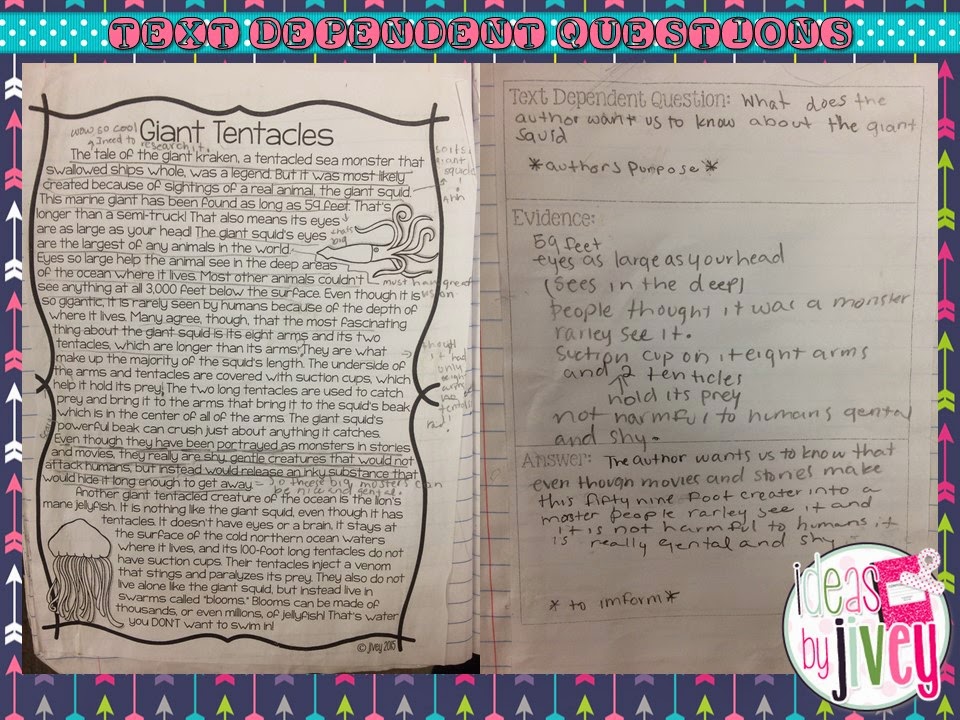 TEXT DEPENDENT QUESTIONS
wow so cool
I need to research it.
Giant Tentacles
The tale of the giant kraken, a tentacled sea monster that
swallowed ships whole, was a legend. But it was most likely
created because of sightings of a real animal, the giant squid.
This marine giant has been found as long as 59 feet. That's
longer than a semi-truck! That also means its eyes
are as large as your head! The giant squid's eyes
are the largest of any animals in the world.
Eyes so large help the animal see in the deep areas
of the ocean where it lives. Most other animals couldn't
see anything at all 3,000 feet below the surface. Even though it is
so gigantic, it is rarely seen by humans because of the depth of
where it lives. Many agree, though, that the most fascinating
thing about the giant squid is its eight arms and its two
tentacles, which are longer than its arms. They are what
make up the majority of the squid's length. The underside of
the arms and tentacles are covered with suction cups, which
help it hold its prey. The two long tentacles are used to catch
prey and bring it to the arms that bring it to the squid's beak
which is in the center of all of the arms. The giant squid's
powerful beak can crush just about anything it catches.
Even though they have been portrayed as monsters in stories
and movies, they really are shy, gentle creatures that would not
attack humans, but instead would release an inky substance that
would hide it long enough to get away.
Another giant tentacled creature of the ocean is the lion's
mane jellyfish. It is nothing like the giant squid, even though it has
tentacles. It doesn't have eyes or a brain. It stays at
the surface of the cold northern ocean waters
where it lives, and its 100-foot long tentacles do not
have suction cups. Their tentacles inject a venom
that stings and paralyzes its prey. They also do not
live alone like the giant squid, but instead live in
swarms called "blooms." Blooms can be made of
thousands, or even millions, of jellyfish! That's water
you DON'T want to swim in!
© jivey 2015
so its
giant
squid
!
Ahh
thats
big
must have great
vision
thought
it had
only
eight
arms
tentals
So these big mosters can
be nice and gental.
Text Dependent Question: What does the
author want us to know about the giant
squid
*authors purpose*
Evidence:
59 feet
eyes as large as your head
(sees in the deep)
people thought it was a monster
rarley see it.
suction cup on it eight arms
and 2 tenticles
hold its prey
not harmful to humans gental
and shy.
Answer: The author wants us to know that
even though movies and stories make
this fifty nine foot creater into a
moster people rarley see it and
it is not harmful to humans it
is really gental and shy
* to imform*
ideas
by
jivey